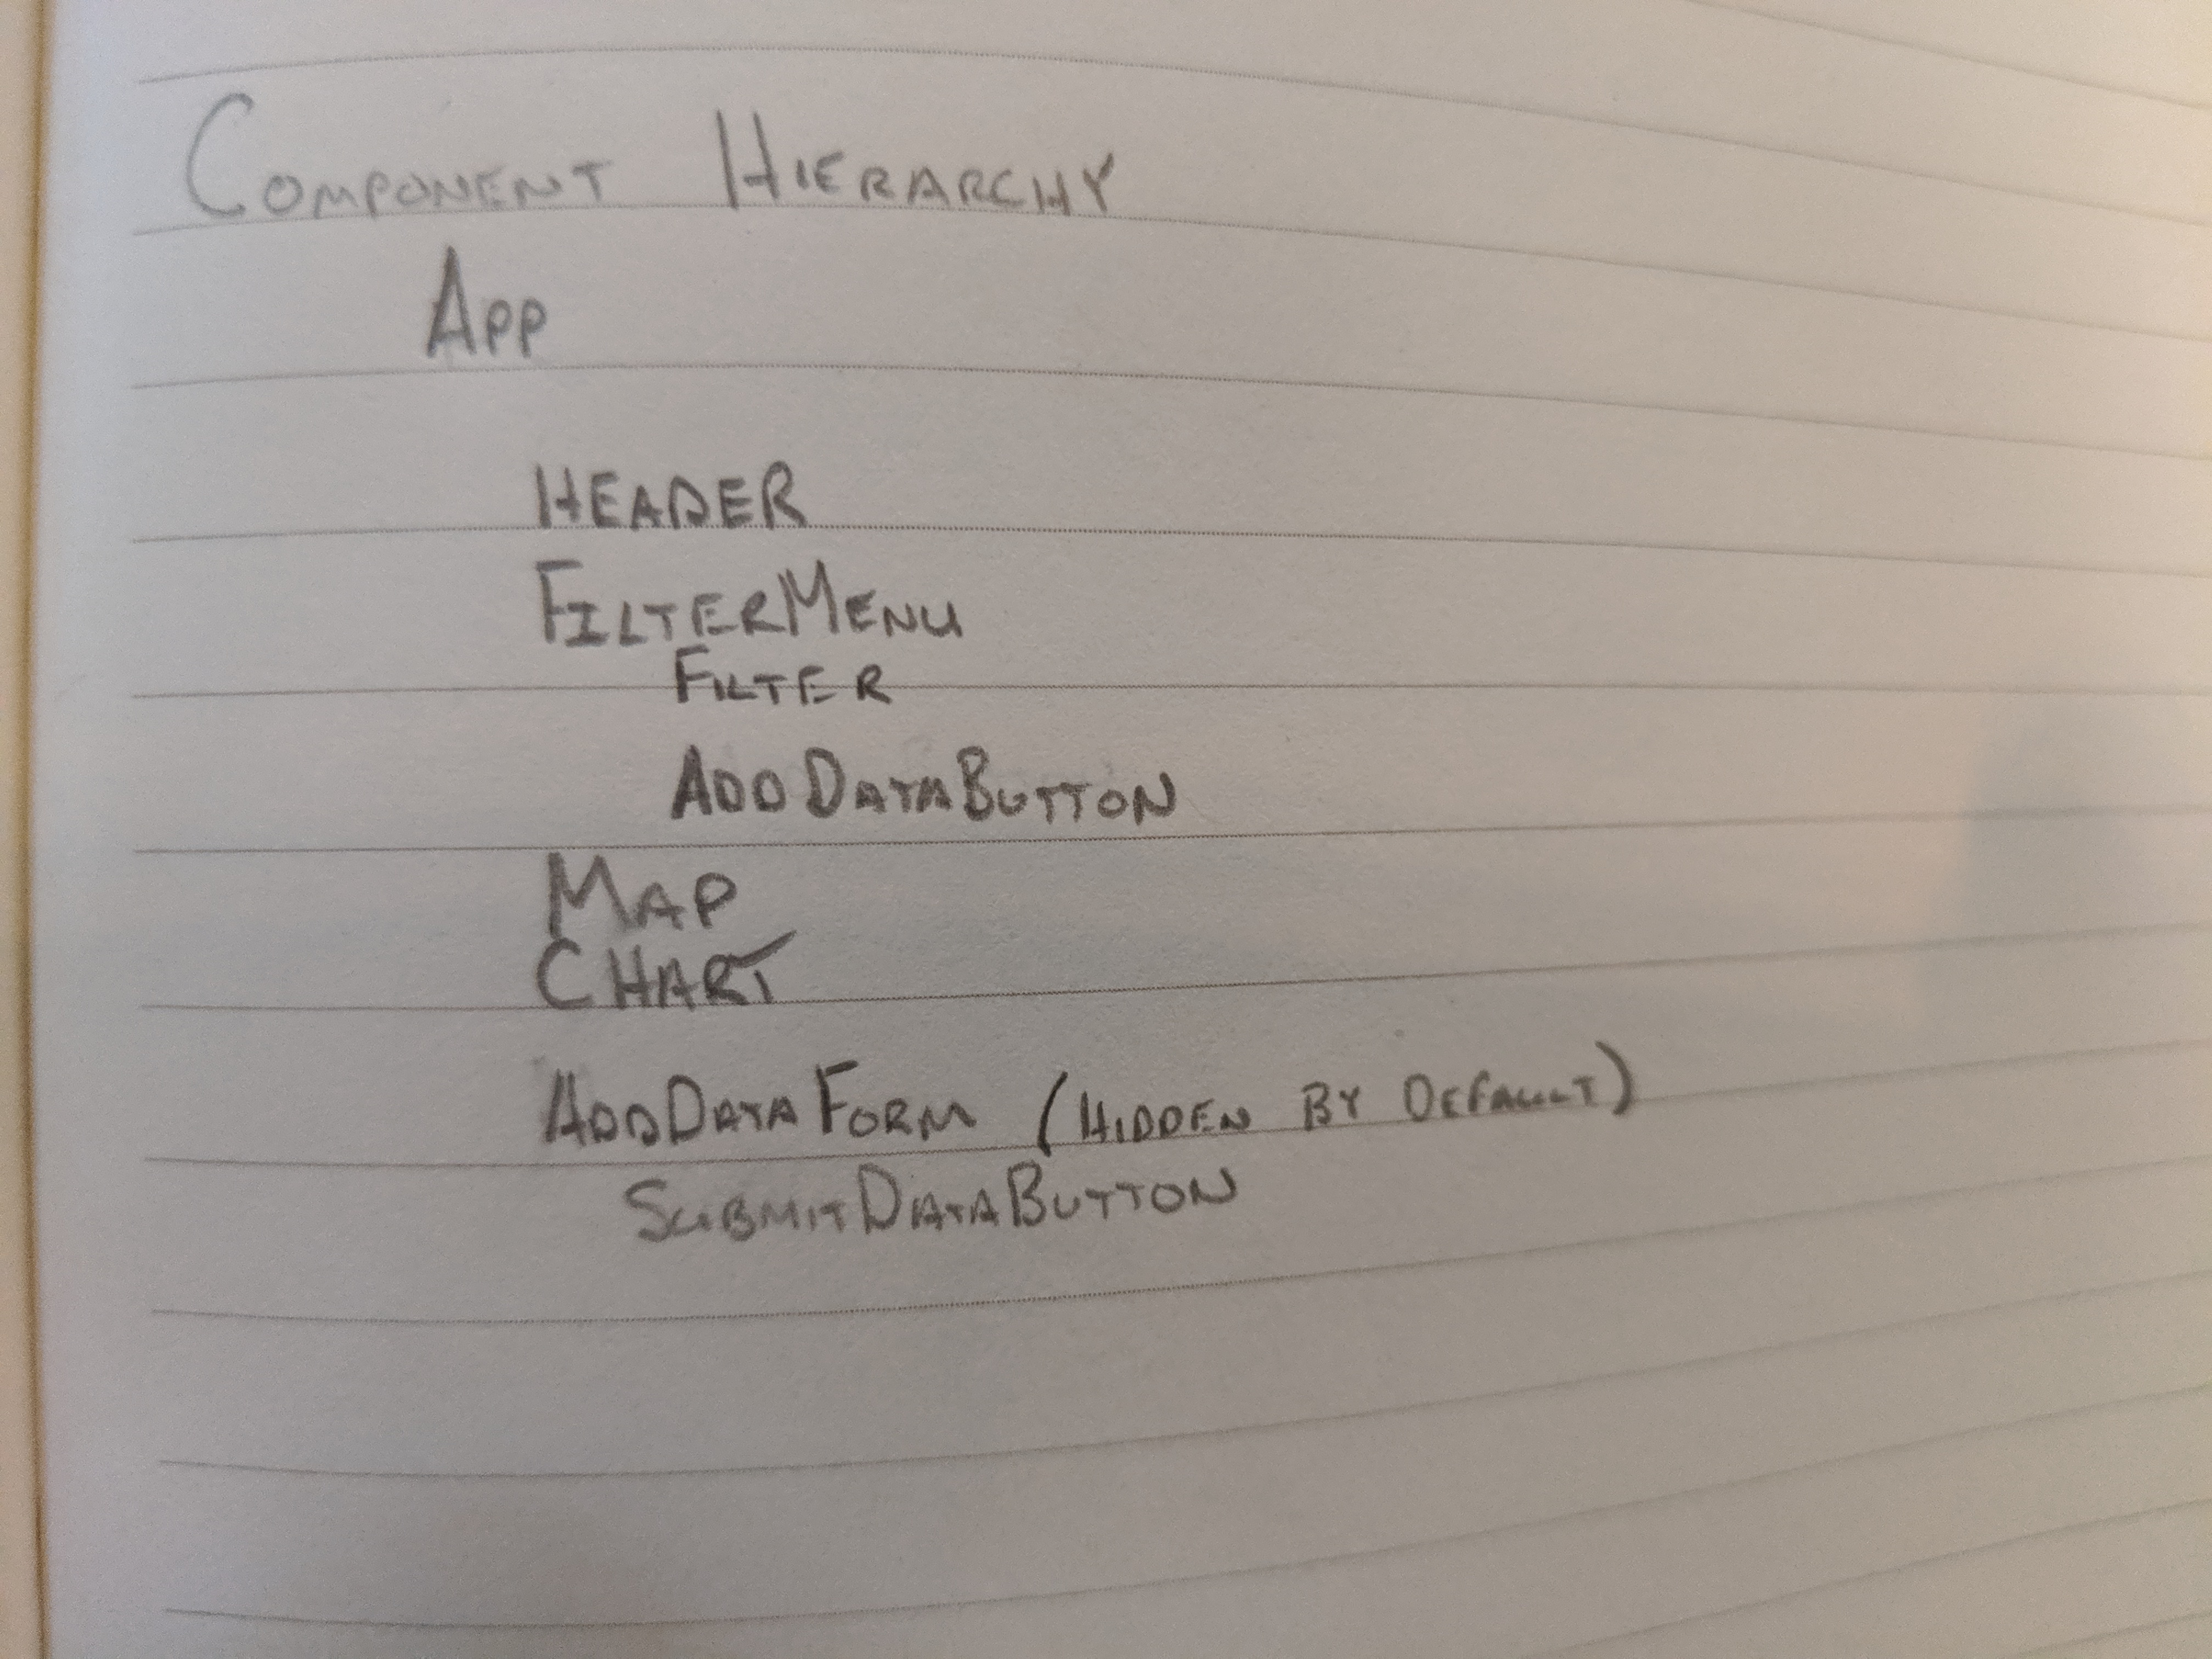 Component Hierarchy
App
Header
FilterMenu
Filter
AddDataButton
Map
Chart
AddDataForm (Hidden By Default)
SubmitDataButton